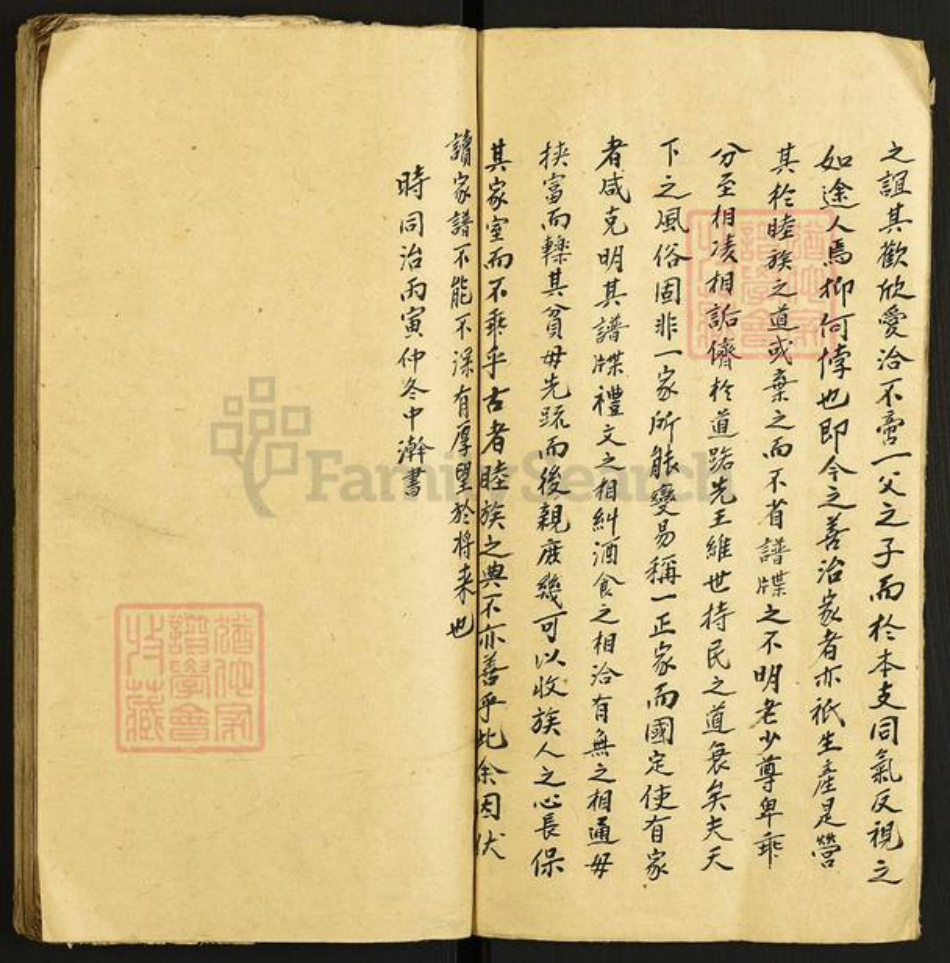 之誼其歡欣愛洽不啻一父之子而於本支同氣反視之
如途人焉抑何悖也即今之善治家者亦祇生產是營
其於睦族之道或棄之而不省譜牒之不明老少尊卑乖
分至相凌相詬儕於道路先王維世持民之道衰矣夫天
下之風俗固非一家所能變易稱一正家而國定使有家
者咸克明其譜牒禮文之相糾酒食之相洽有無之相通毋
挾富而轢其貧毋先疏而後親庶幾可以收族人之心長保
其家室而不乖乎古者睦族之典不亦善乎此余因伏
讀家譜不能不深有厚望於將來也
時同治丙寅仲冬中澣書
猶他家
譜學會
收藏
猶他家
譜學會
收藏
FamilySearch